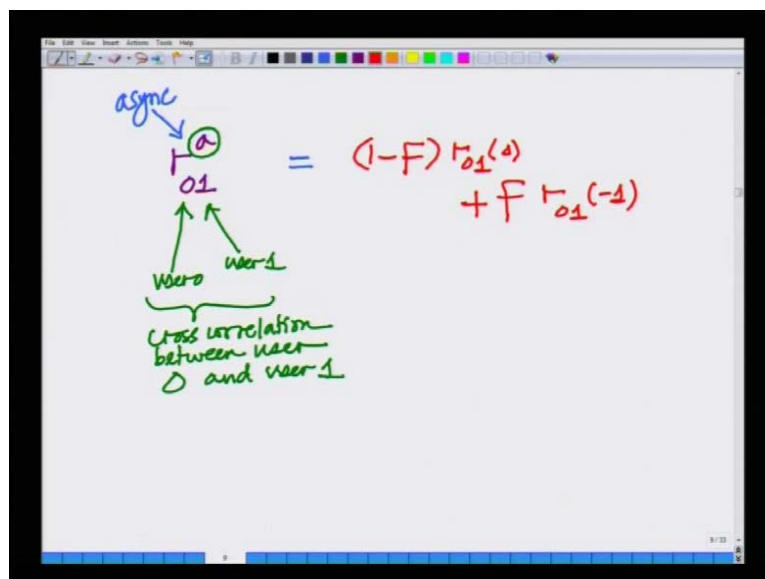 File Edit View Insert Actions Tools Help
B I
async
r^a_01 = (1-F) r_01(0)
+ F r_01(-1)
user 0 user 1
cross correlation
between user
0 and user 1
9/33
9